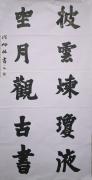 披雲煉瓊液
坐月觀古書